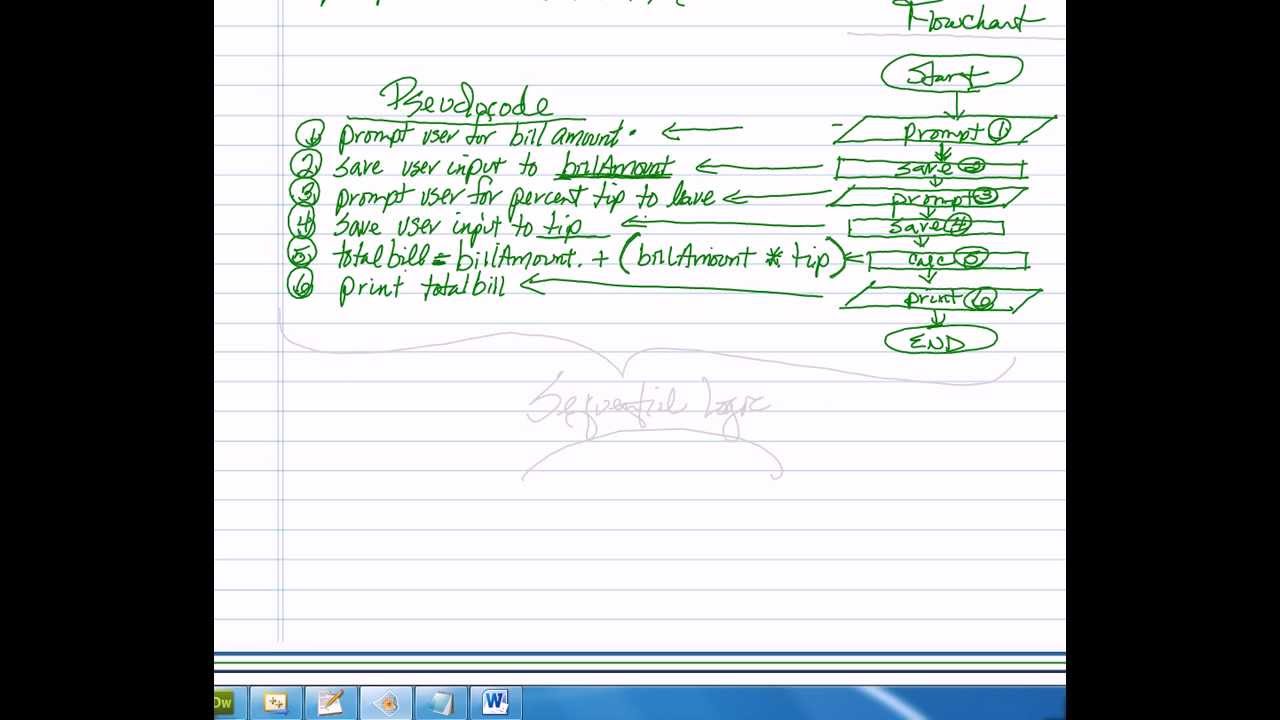 Flowchart
Start
Pseudocode
① prompt user for bill amount.
prompt ①
② save user input to billAmount
save ②
③ prompt user for percent tip to leave
prompt ③
④ save user input to tip
save ④
⑤ totalbill = billAmount. + (billAmount * tip)
calc ⑤
⑥ print totalbill
print ⑥
END
Sequential Logic
Dw
W